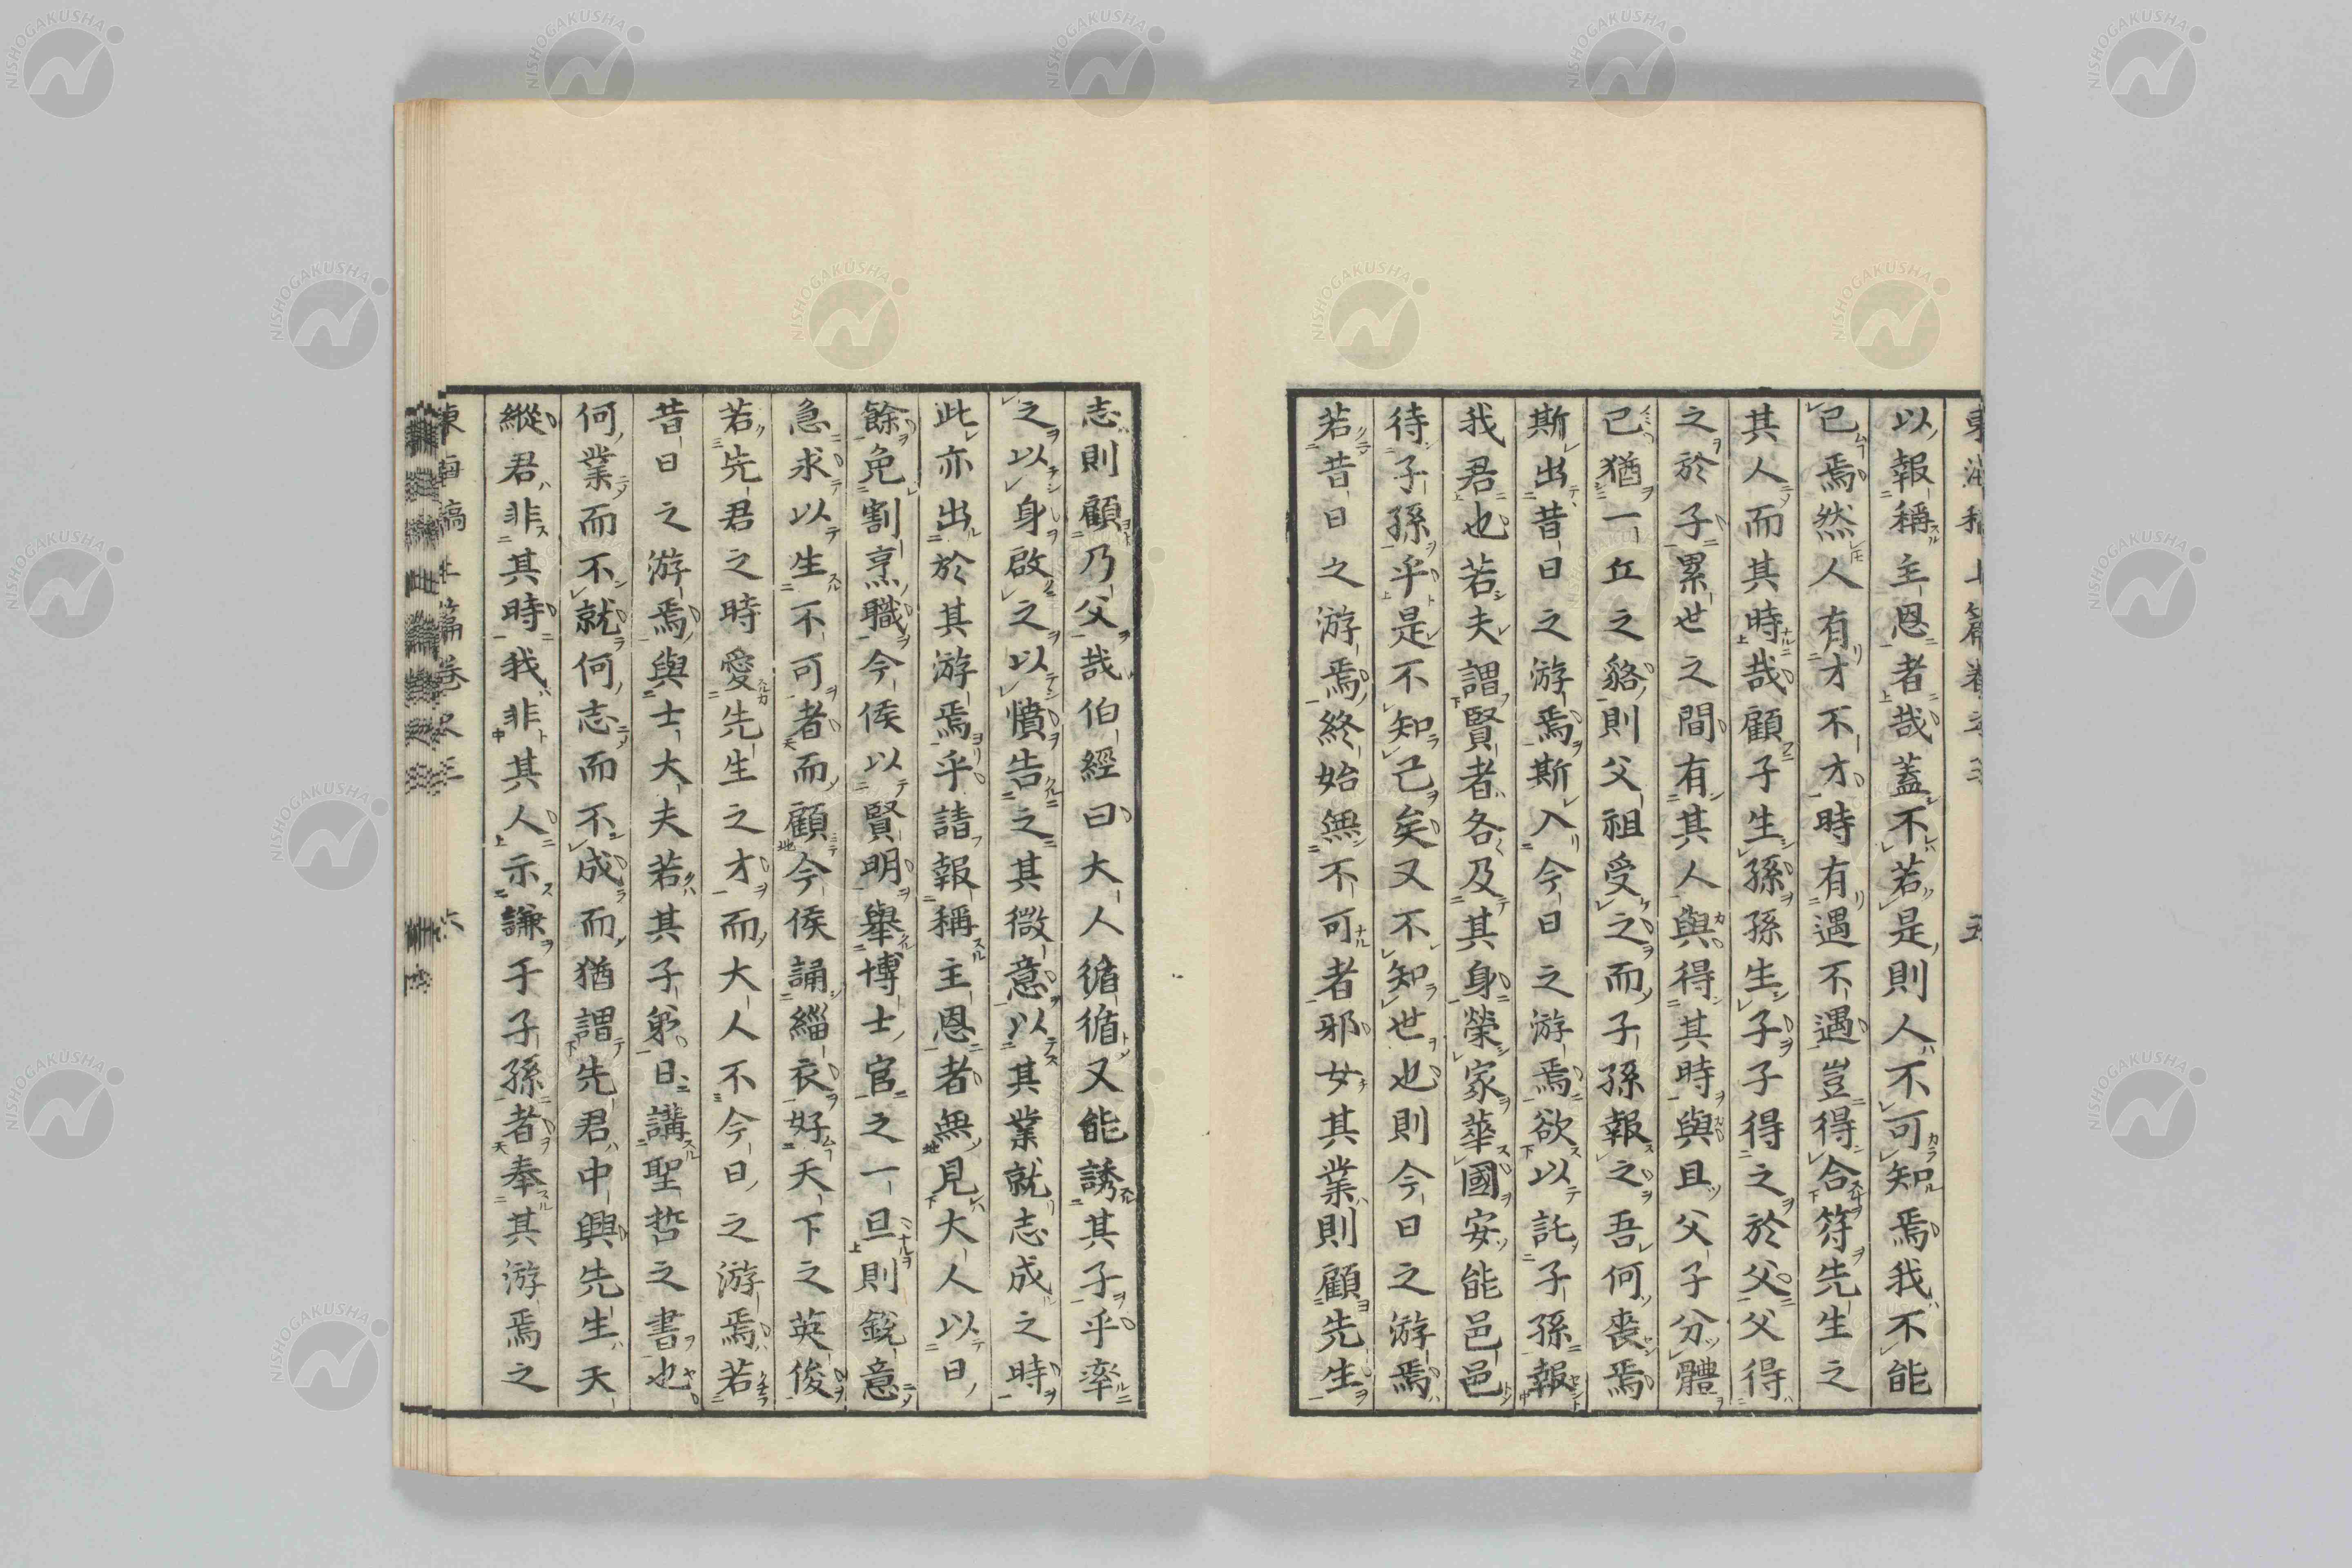 以報稱主恩者哉蓋不若是則人不可知焉我不能
已焉然人有才不才時有遇不遇豈得合符先生之
其人而其時哉顧子生孫孫生子子得之於父父得
之於子累世之間有其人與得其時與且父子分體
已猶一丘之貉則父祖受之而子孫報之吾何喪焉
斯出昔日之游焉斯入今日之游焉欲以託子孫報
我君也若夫謂賢者各及其身榮家華國安能邑邑
待子孫乎是不知己矣又不知世也則今日之游焉
若昔日之游焉終始無不可者邪女其業則顧先生
志則顧乃父哉伯經曰大人循循又能誘其子乎率
之以身啟之以憤告之其微意以其業就志成之時
此亦出於其游焉乎請報稱主恩者無見大人以日
餘免割烹職今侯以賢明舉博士官之一旦則銳意
急求以生不可者而顧今侯誦緇衣好天下之英俊
若先君之時愛先生之才而大人不今日之游焉若
昔日之游焉與士大夫若其子躬日講聖哲之書也
何業而不就何志而不成而猶謂先君中興先生天
縱君非其時我非其人示謙于子孫者奉其游焉之
東海稿上篇卷之三 六
NISHOGAKUSHA